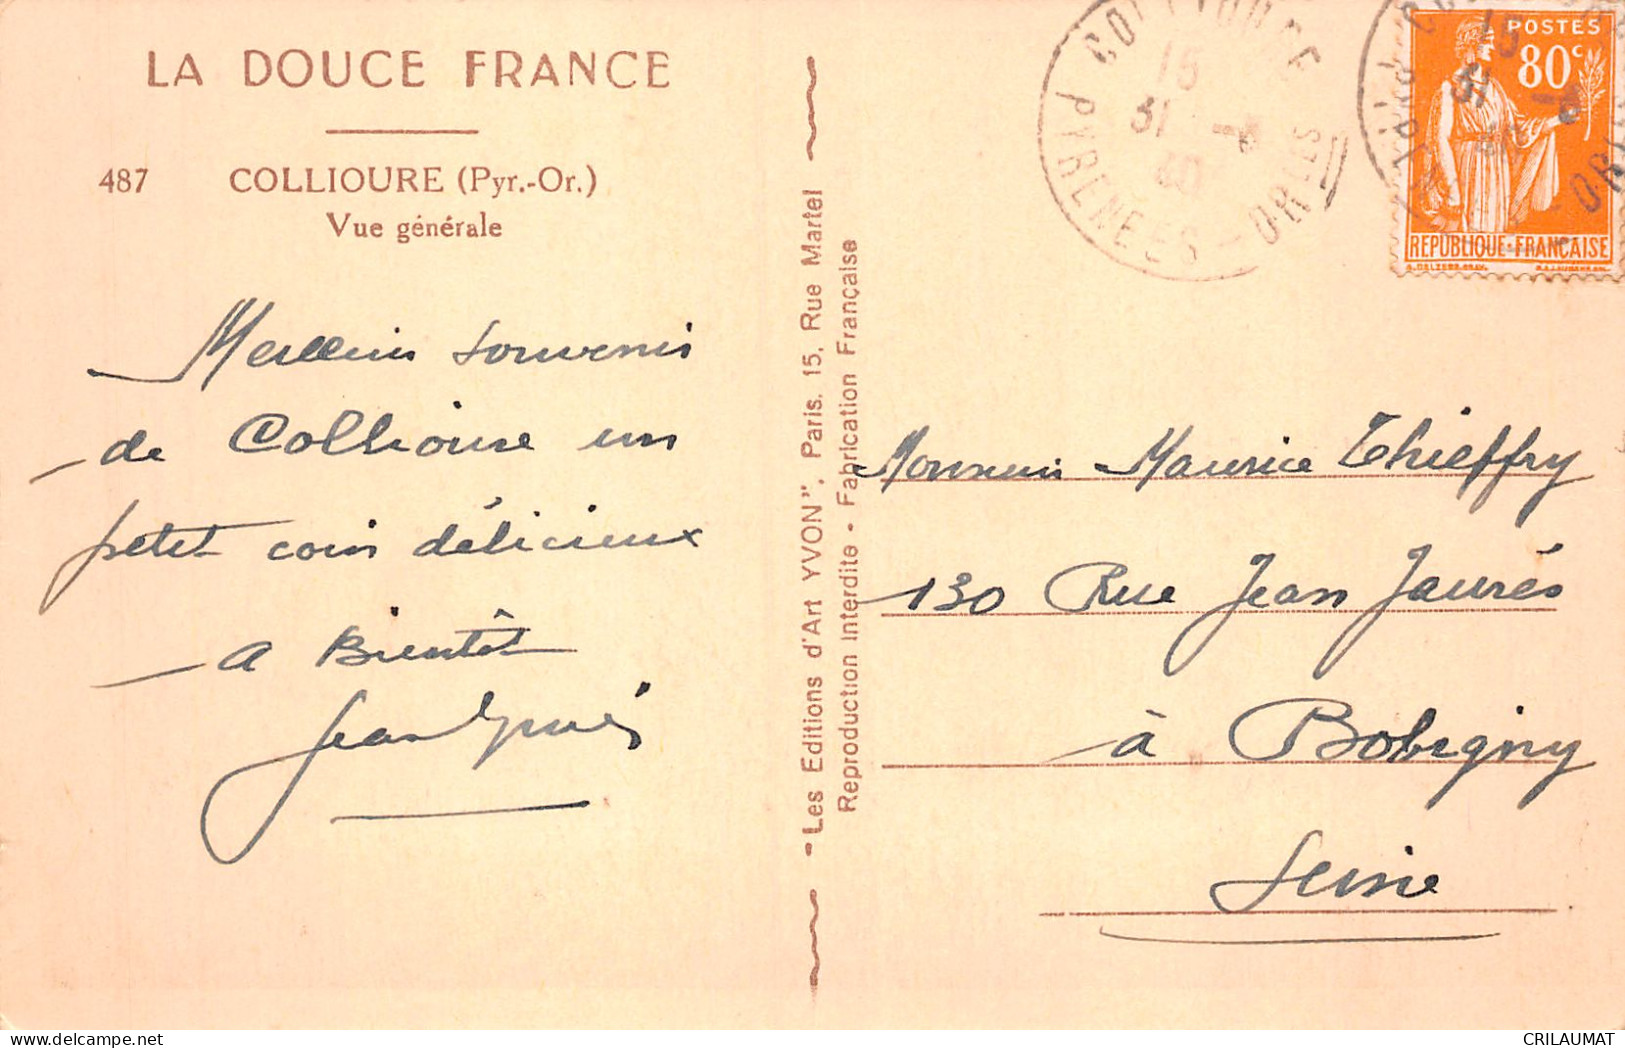 LA DOUCE FRANCE
487 COLLIOURE (Pyr.-Or.)
Vue générale
Meilleurs souvenirs
de Collioure un
petit coin délicieux
a Bientôt
Jean
Les Editions d'Art YVON", Paris. 15, Rue Martel
Reproduction Interdite - Fabrication Française
COLLIOURE
15
31 -
40
PYRENEES - ORLES
POSTES
80c
REPUBLIQUE·FRANÇAISE
Monsieur Maurice Thieffry
130 Rue Jean Jaurés
à Bobigny
Seine
CRILAUMAT